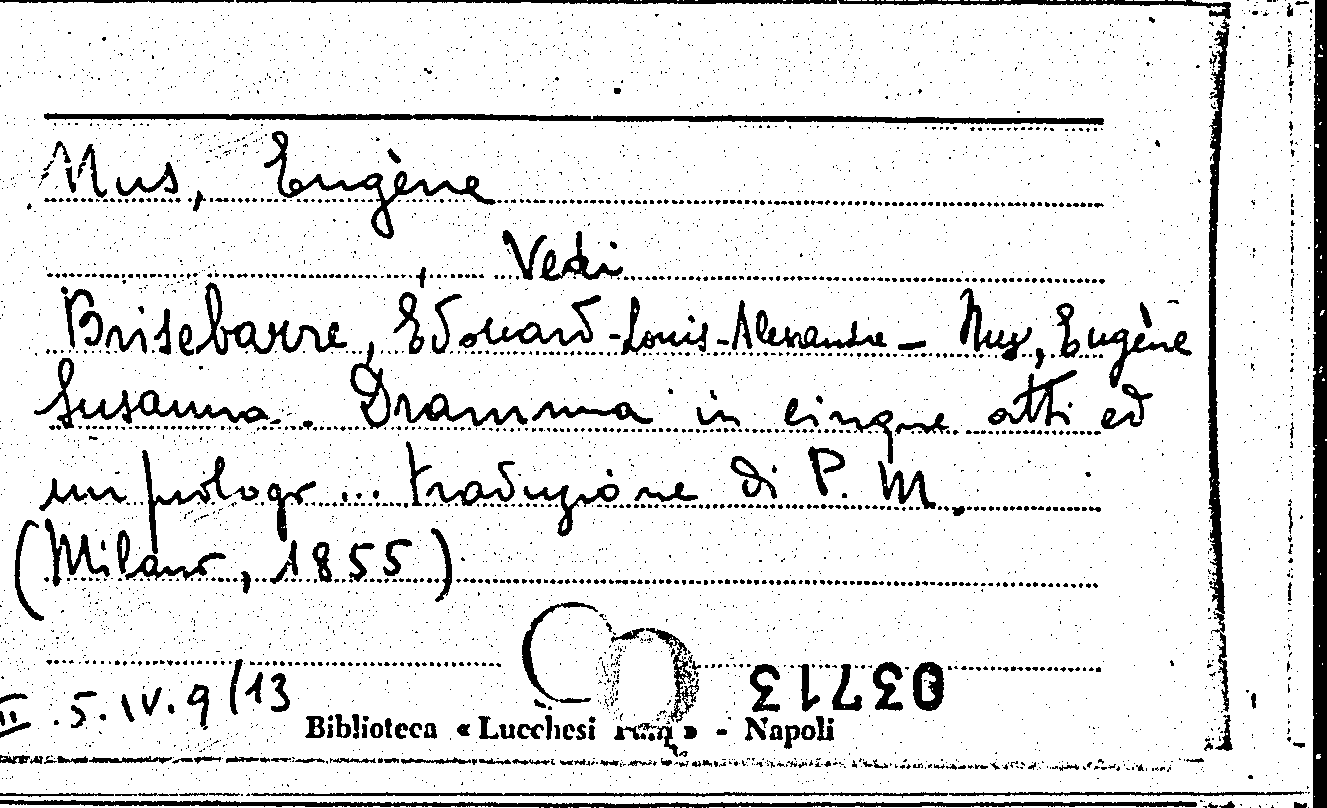 Nus, Eugène
Vedi
Brisebarre, Édouard-Louis-Alexandre - Nus, Eugène
Susanna. Dramma in cinque atti ed
un prologo ... traduzione di P. M.
(Milano, 1855)
03713
II.5.IV.9/13
Biblioteca « Lucchesi Palli » - Napoli